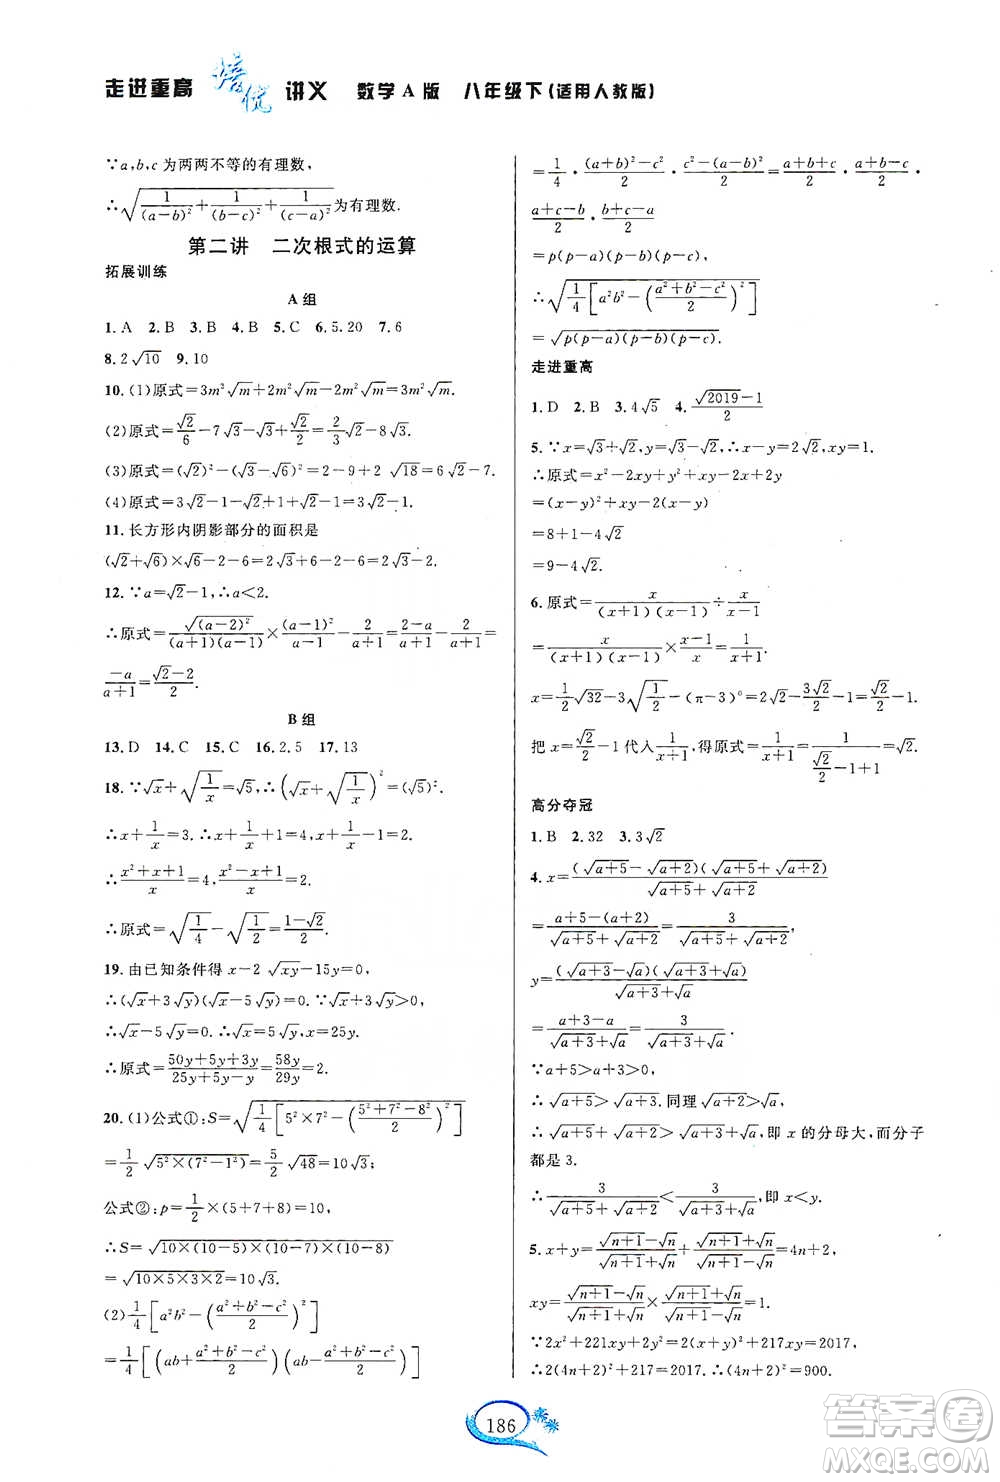 走进重高 培优 讲义 数学 A 版 八年级下(适用人教版)
∵a,b,c 为两两不等的有理数,
∴√(1/(a−b)²+1/(b−c)²+1/(c−a)²)为有理数.
第二讲 二次根式的运算
拓展训练
A 组
1. A 2. B 3. B 4. B 5. C 6. 5. 20 7. 6
8. 2√10 9. 10
10. (1)原式=3m²√m+2m²√m−2m²√m=3m²√m.
(2)原式=√2/6−7√3−√3+√2/2=2/3√2−8√3.
(3)原式=(√2)²−(√3)²=2−9+2√18=6√2−7.
(4)原式=3√2−√2+√2+2√2=5√2.
11. 长方形内阴影部分的面积是
(√2+√6)×√6−2−6=2√3+6−2−6=2√3−2.
12. ∵a=√2−1,∴a<2.
∴原式=√(a−2)²/((a+1)(a−1))×(a−1)/(a−1)−2/(a+1)=(2−a)/(a+1)−2/(a+1)=
−a/(a+1)=(√2−2)/2.
B 组
13. D 14. C 15. C 16. 2,5 17. 13
18. ∵√x+√(1/x)=√5,∴(√x+√(1/x))²=(√5)².
∴x+1/x=3. ∴x+1/x+1=4,x+1/x−1=2.
∴(x²+x+1)/x=4,(x²−x+1)/x=2.
∴原式=√(1/4)−√(1/2)=(1−√2)/2.
19. 由已知条件得 x−2√xy−15y=0.
∴(√x+3√y)(√x−5√y)=0. ∵√x+3√y>0,
∴√x−5√y=0. ∴√x=5√y,x=25y.
∴原式=(50y+5y+3y)/(25y+5y−y)=58y/29y=2.
20. (1)公式①:S=√(1/4[5²×7²−((5²+7²−8²)/2)²])
=1/2√(5²×(7²−1²))=5/2√48=10√3;
公式②:p=1/2×(5+7+8)=10,
∴S=√(10×(10−5)×(10−7)×(10−8))
=√(10×5×3×2)=10√3.
(2)1/4[a²b²−((a²+b²−c²)/2)²]
=1/4[(ab+(a²+b²−c²)/2)(ab−(a²+b²−c²)/2)]
=1/4·((a+b)²−c²)/2·(c²−(a−b)²)/2=(a+b+c)/2·(a+b−c)/2·
(a+c−b)/2·(b+c−a)/2
=p(p−a)(p−b)(p−c),
∴√(1/4[a²b²−((a²+b²−c²)/2)²])
=√(p(p−a)(p−b)(p−c)).
走进重高
1. D 2. B 3. 4√5 4. (√2019−1)/2
5. ∵x=√3+√2,y=√3−√2,∴x−y=2√2,xy=1.
∴原式=x²−2xy+y²+xy−2x+2y
=(x−y)²+xy−2(x−y)
=8+1−4√2
=9−4√2.
6. 原式=x/((x+1)(x−1))÷x/(x−1)
=x/((x+1)(x−1))×(x−1)/x=1/(x+1).
x=1/2√32−3√(1/2)−(π−3)⁰=2√2−3√2/2−1=√2/2−1.
把 x=√2/2−1代入1/(x+1),得原式=1/(x+1)=1/(√2/2−1+1)=√2.
高分夺冠
1. B 2. 32 3. 3√2
4. x=(√(a+5)−√(a+2))(√(a+5)+√(a+2))/(√(a+5)+√(a+2))
=(a+5−(a+2))/(√(a+5)+√(a+2))=3/(√(a+5)+√(a+2)),
y=(√(a+3)−√a)(√(a+3)+√a)/(√(a+3)+√a)
=(a+3−a)/(√(a+3)+√a)=3/(√(a+3)+√a).
∵a+5>a+3>0,
∴√(a+5)>√(a+3). 同理√(a+2)>√a,
∴√(a+5)+√(a+2)>√(a+3)+√a,即 x 的分母大,而分子
都是 3.
∴3/(√(a+5)+√(a+2))<3/(√(a+3)+√a),即 x<y.
5. x+y=(√(n+1)−√n)/(√(n+1)+√n)+(√(n+1)+√n)/(√(n+1)−√n)=4n+2,
xy=(√(n+1)−√n)/(√(n+1)+√n)×(√(n+1)+√n)/(√(n+1)−√n)=1.
∵2x²+221xy+2y²=2(x+y)²+217xy=2017,
∴2(4n+2)²+217=2017. ∴(4n+2)²=900.
186
答案圈
MXQE.COM